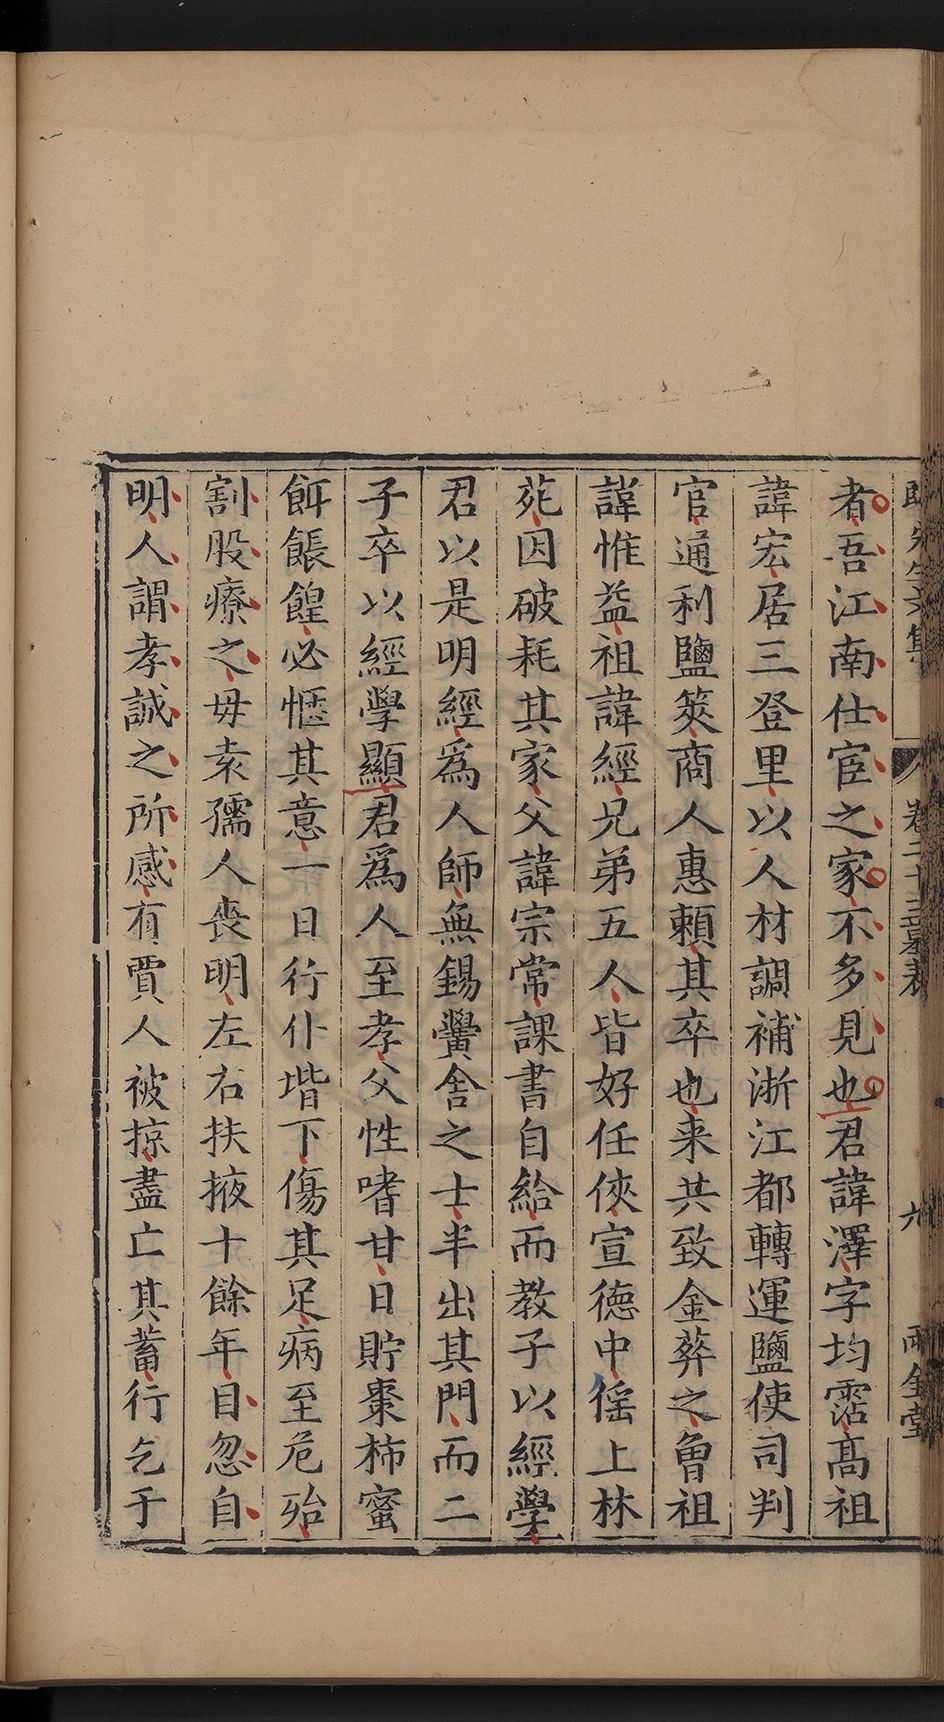 者吾江南仕宦之家不多見也君諱澤字均霑高祖
諱宏居三登里以人材調補浙江都轉運鹽使司判
官通利鹽筴商人惠賴其卒也来共致金葬之曾祖
諱惟益祖諱經兄弟五人皆好任俠宣德中徭上林
苑因破耗其家父諱宗常課書自給而教子以經學
君以是明經爲人師無錫黌舍之士半出其門而二
子卒以經學顯君爲人至孝父性嗜甘日貯棗柿蜜
餌餦餭必愜其意一日行仆堦下傷其足病至危殆
割股療之毋袁孺人喪明左右扶掖十餘年目忽自
明人謂孝誠之所感有賈人被掠盡亡其蓄行乞于